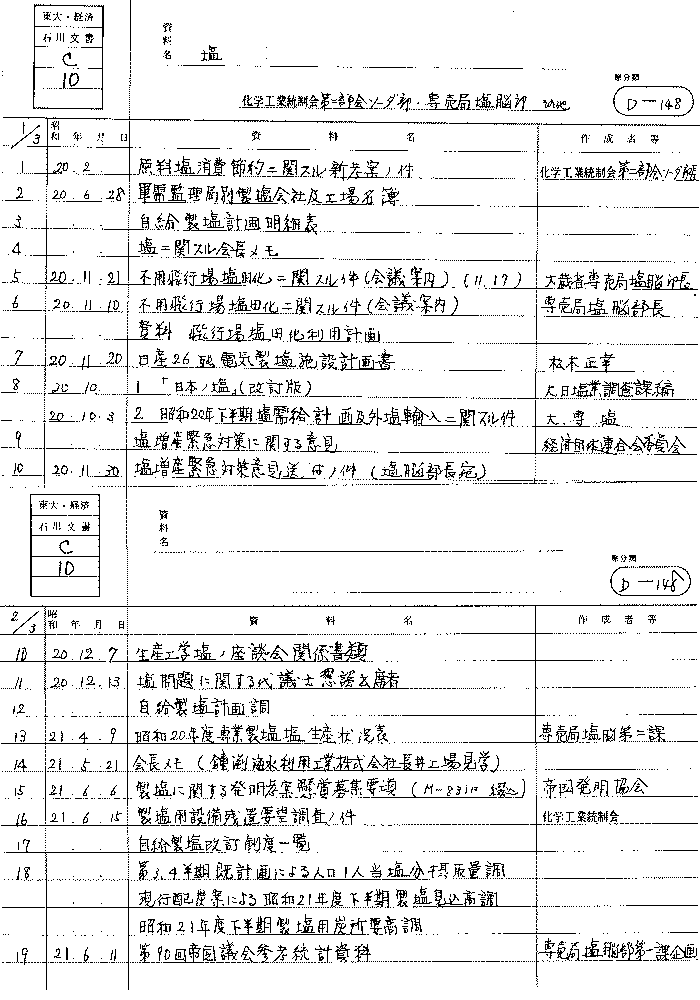 東大・経済
石川文書
C
10
資料名 塩
化学工業統制会第二部会ソーダ部・専売局塩脳部
原分類
D-148
1/3 昭和 年 月 日 資料名 作成者等
1 20.2 原料塩消費節約ニ関スル新考案ノ件 化学工業統制会第二部会ソーダ部
2 20.6.28 軍需監理局別製塩会社及工場名簿
3 自給製塩計画明細表
4 塩ニ関スル会長メモ
5 20.11.21 不用飛行場塩田化ニ関スル件(会議案内)(11.17) 大蔵省専売局塩脳部長
6 20.11.10 不用飛行場塩田化ニ関スル件(会議案内) 専売局塩脳部長
資料 飛行場塩田化利用計画
7 20.11.20 日産26瓲電気製塩施設計画書 松木正幸
8 20.10. 1 「日本ノ塩」(改訂版) 大日塩業調査課編
20.10.3 2 昭和20年下半期塩需給計画及外塩輸入ニ関スル件 大.専.塩
9 塩増産緊急対策に関する意見 経済団体連合会委員会
10 20.11.30 塩増産緊急対策意見送付ノ件(塩脳部長宛)
東大・経済
石川文書
C
10
資料名
原分類
D-148
2/3 昭和 年 月 日 資料名 作成者等
10 20.12.7 生産工営塩ノ座談会関係書類
11 20.12.13 塩問題に関する代議士懇談会席者
12 自給製塩計画調
13 21.4.9 昭和20年度専業製塩塩生産状況表 専売局塩脳第二課
14 21.5.21 会長メモ(鐘淵海水利用工業株式会社長井工場見学)
15 21.6.6 製塩に関する発明考案懸賞募集要項 帝国発明協会
16 21.6.15 製塩用設備残置要望調査ノ件 化学工業統制会
17 自給製塩改訂制度一覧
18 第3,4半期既計画による人口1人当塩分摂取量調
現行配炭案による昭和21年度下半期製塩見込高調
昭和21年度下半期製塩用炭所要高調
19 21.6.11 第90回帝国議会参考統計資料 専売局塩脳部第一課企画